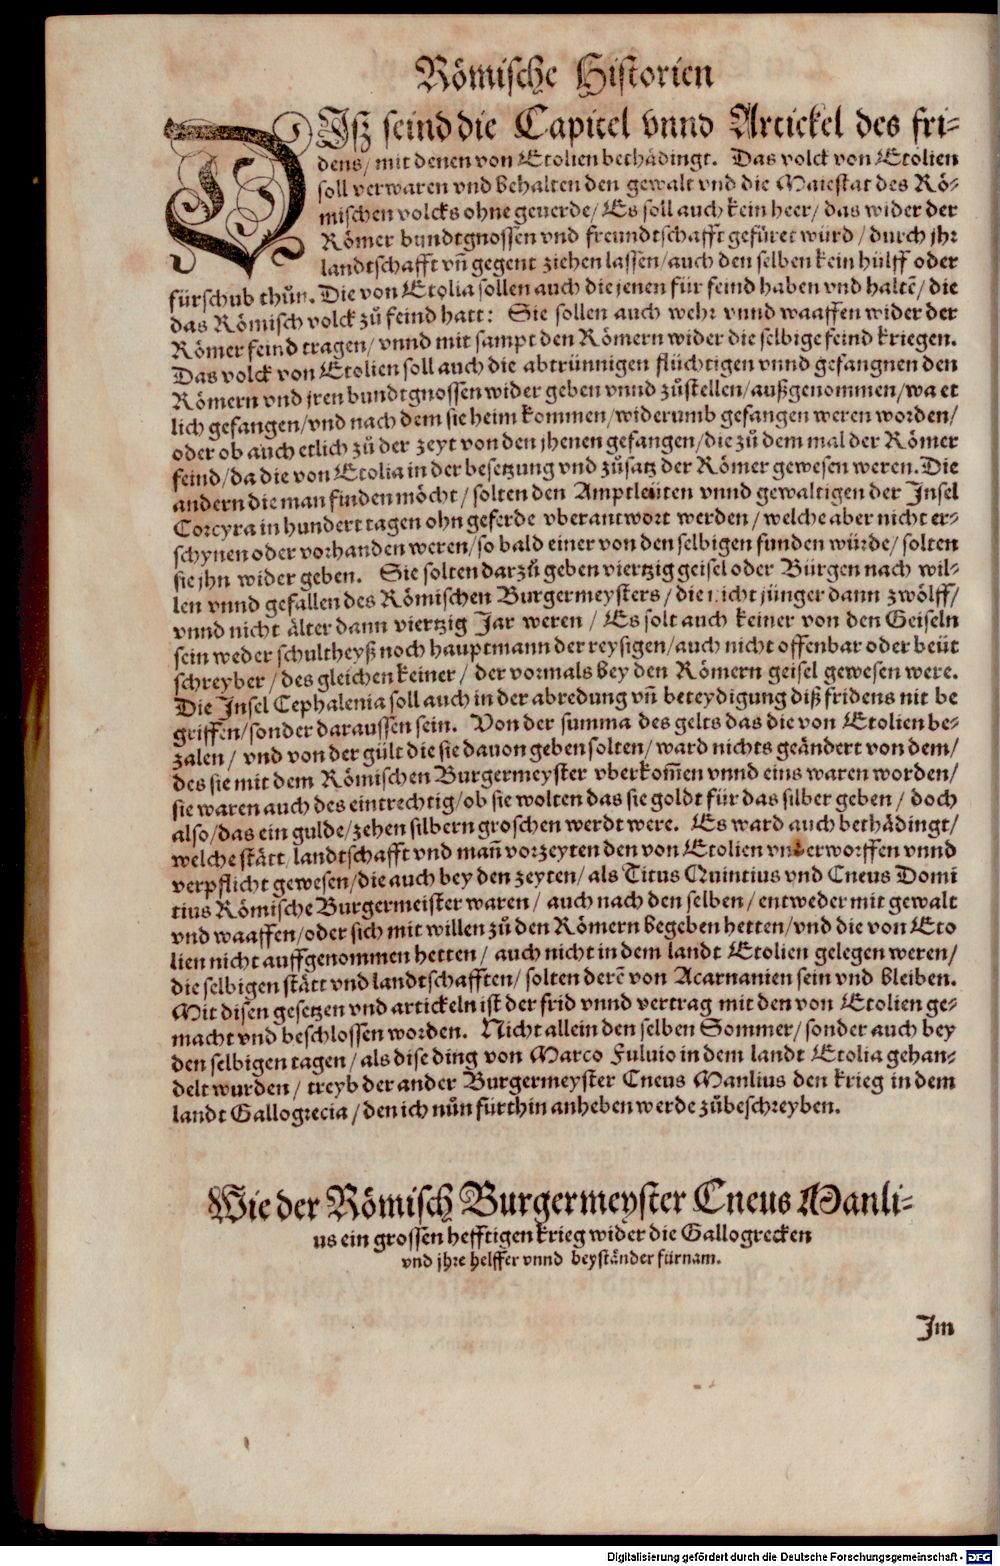 Römische Historien
DIſz ſeind die Capitel vnnd Artickel des fri-
dens/ mit denen von Etolien bethädingt. Das volck von Etolien
ſoll verwaren vnd behalten den gewalt vnd die Maieſtat des Rö-
miſchen volcks ohne geuerde/ Es ſoll auch kein heer/ das wider der
Römer bundtgnoſſen vnd freundtſchafft gefüret würd/ durch jhr
landtſchafft vñ gegent ziehen laſſen/ auch den ſelben kein hülff oder
fürſchub thůn. Die von Etolia ſollen auch die jenen für feind haben vnd haltē/ die
das Römiſch volck zů feind hatt: Sie ſollen auch wehr vnnd waaffen wider der
Römer feind tragen/ vnnd mit ſampt den Römern wider die ſelbige feind kriegen.
Das volck von Etolien ſoll auch die abtrünnigen flüchtigen vnnd gefangnen den
Römern vnd jren bundtgnoſſen wider geben vnnd zůſtellen/ außgenommen/ wa et
lich gefangen/ vnd nach dem ſie heim kommen/ widerumb gefangen weren worden/
oder ob auch etlich zů der zeyt von den jhenen gefangen/ die zů dem mal der Römer
feind/ da die von Etolia in der beſetzung vnd zůſatz der Römer geweſen weren. Die
andern die man finden möcht/ ſolten den Amptleüten vnnd gewaltigen der Inſel
Corcyra in hundert tagen ohn geferde vberantwort werden/ welche aber nicht er-
ſchynen oder vorhanden weren/ ſo bald einer von den ſelbigen funden würde/ ſolten
ſie jhn wider geben. Sie ſolten darzů geben viertzig geiſel oder Bürgen nach wil-
len vnnd gefallen des Römiſchen Burgermeyſters/ die nicht jünger dann zwölff/
vnnd nicht älter dann viertzig Jar weren/ Es ſolt auch keiner von den Geiſeln
ſein weder ſchultheyß noch hauptmann der reyſigen/ auch nicht offenbar oder beüt
ſchreyber/ des gleichen keiner/ der vormals bey den Römern geiſel geweſen were.
Die Inſel Cephalenia ſoll auch in der abredung vñ beteydigung diß fridens nit be
griffen/ ſonder darauſſen ſein. Von der ſumma des gelts das die von Etolien be-
zalen/ vnd von der gült die ſie dauon geben ſolten/ ward nichts geändert von dem/
des ſie mit dem Römiſchen Burgermeyſter vberkom̃en vnnd eins waren worden/
ſie waren auch des eintrechtig/ ob ſie wolten das ſie goldt für das ſilber geben/ doch
alſo/ das ein gulde/ zehen ſilbern groſchen werdt were. Es ward auch bethädingt/
welche ſtätt/ landtſchafft vnd mañ vorzeyten den von Etolien vnderworffen vnnd
verpflicht geweſen/ die auch bey den zeyten/ als Titus Quintius vnd Cneus Domi
tius Römiſche Burgermeiſter waren/ auch nach den ſelben/ entweder mit gewalt
vnd waaffen/ oder ſich mit willen zů den Römern begeben hetten/ vnd die von Eto
lien nicht auffgenommen hetten/ auch nicht in dem landt Etolien gelegen weren/
die ſelbigen ſtätt vnd landtſchafften/ ſolten derē von Acarnanien ſein vnd bleiben.
Mit diſen geſetzen vnd artickeln iſt der frid vnnd vertrag mit den von Etolien ge-
macht vnd beſchloſſen worden. Nicht allein den ſelben Sommer/ ſonder auch bey
den ſelbigen tagen/ als diſe ding von Marco Fuluio in dem landt Etolia gehan-
delt wurden/ treyb der ander Burgermeyſter Cneus Manlius den krieg in dem
landt Gallogrecia/ den ich nůn fürthin anheben werde zůbeſchreyben.
Wie der Römiſch Burgermeyſter Cneus Manli-
us ein groſſen hefftigen krieg wider die Gallogrecken
vnd jhre helffer vnnd beyſtänder fürnam.
Im
Digitalisierung gefördert durch die Deutsche Forschungsgemeinschaft - DFG